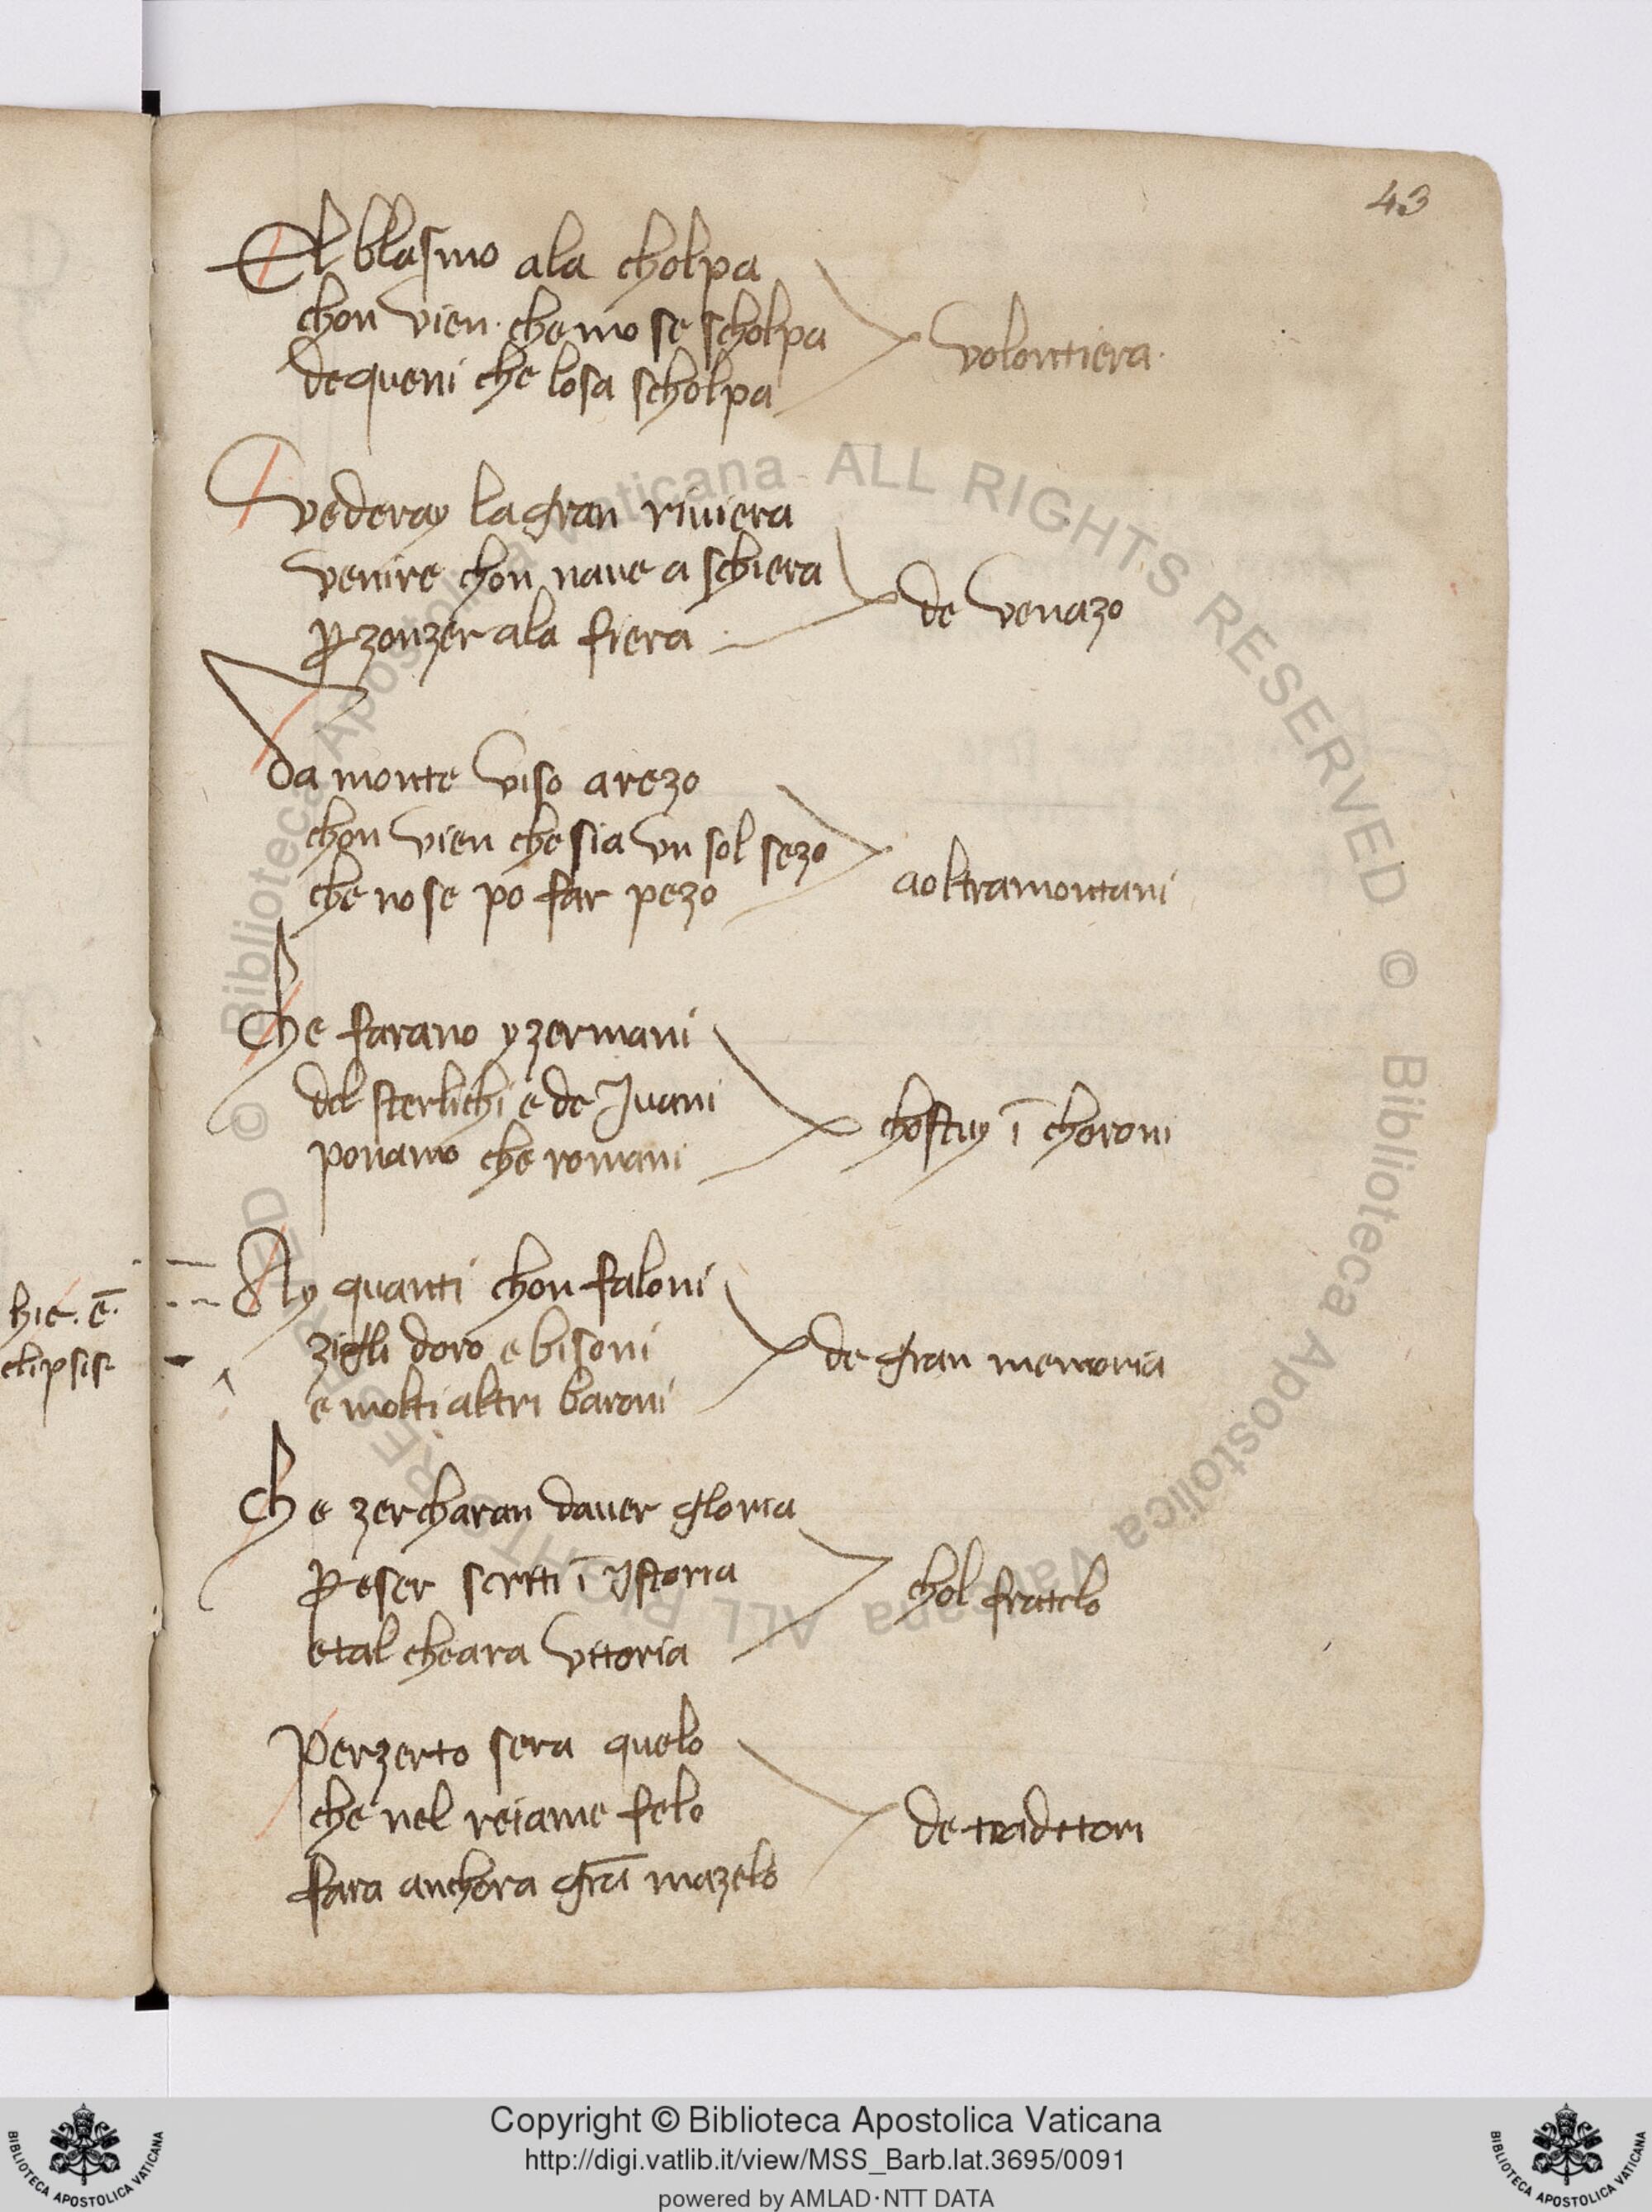 43
El blasmo ala cholpa
chon vien · che mo se scholpa
de queni che losa scholpa
volontiera ·
Vederay la gran riviera
venire chon nave a schiera
p̱ zonzer ala fiera
de venazo
Da monte viso arezo
chon vien che sia vn sol sezo
che no se po far pezo
aoltramontani
Che farano y zermani
del sterlichi e de Jvani
ponamo che romani
chostuy ī choroni
Ay quanti chonfaloni
zigli doro e bisoni
e molti altri baroni
de gran memoria
hic · ē ·
clipsis
Che zercharan daver gloria
p̱ eser scritti ī ystoria
e tal che ara vittoria
chol fratelo
Perzerto sera quelo
che nel reiame felo
fara anchora grā mazelo
de traditori
© Biblioteca Apostolica Vaticana - ALL RIGHTS RESERVED
© Biblioteca Apostolica Vaticana ALL RIGHTS RESERVED
Copyright © Biblioteca Apostolica Vaticana
http://digi.vatlib.it/view/MSS_Barb.lat.3695/0091
powered by AMLAD·NTT DATA
BIBLIOTECA APOSTOLICA VATICANA
BIBLIOTECA APOSTOLICA VATICANA